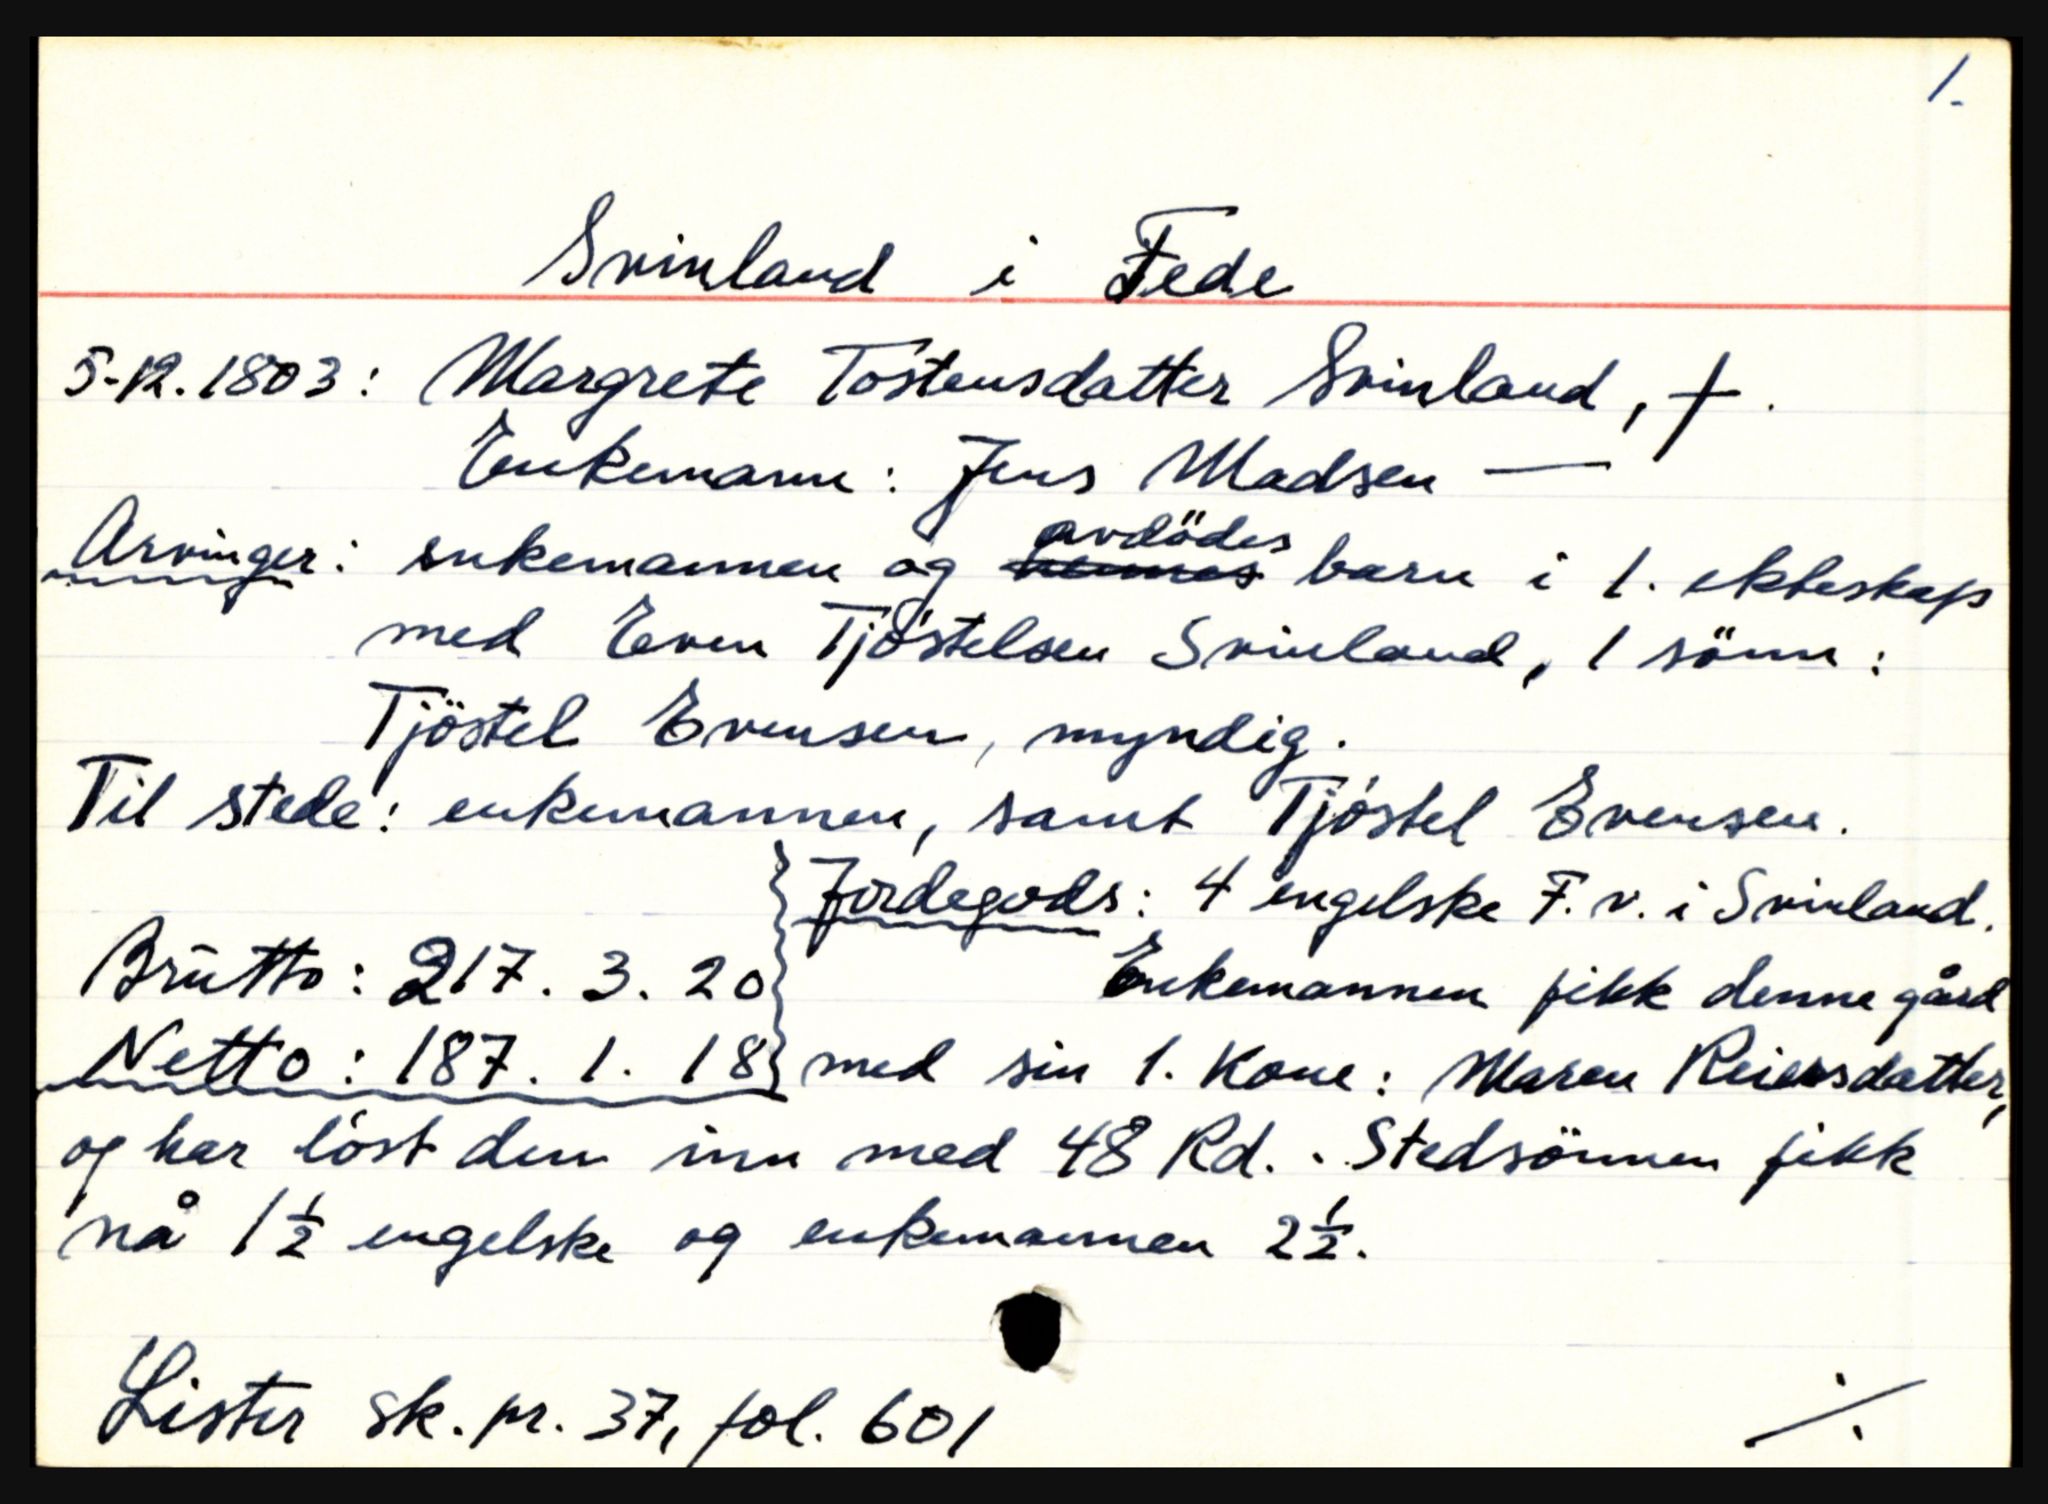 1.
Svinland i Fede
5-12.1803: Margrete Tostensdatter Svinland, †.
Enkemann: Jens Madsen —
Arvinger: enkemannen og avdödes barn i 1. ekteskap
med Even Tjöstelsen Svinland, 1 sönn:
Tjöstel Evensen, myndig.
Til stede: enkemannen, samt Tjöstel Evensen.
Jordegods: 4 engelske F. v. i Svinland.
Brutto: 217. 3. 20 Enkemannen fikk denne gård
Netto: 187. 1. 18 med sin 1. Kone: Maren Reiersdatter,
og har löst den inn med 48 Rd. . Stedsönnen fikk
nå 1½ engelske og enkemannen 2½.
Lister sk. pr. 37, fol. 601 ·/.